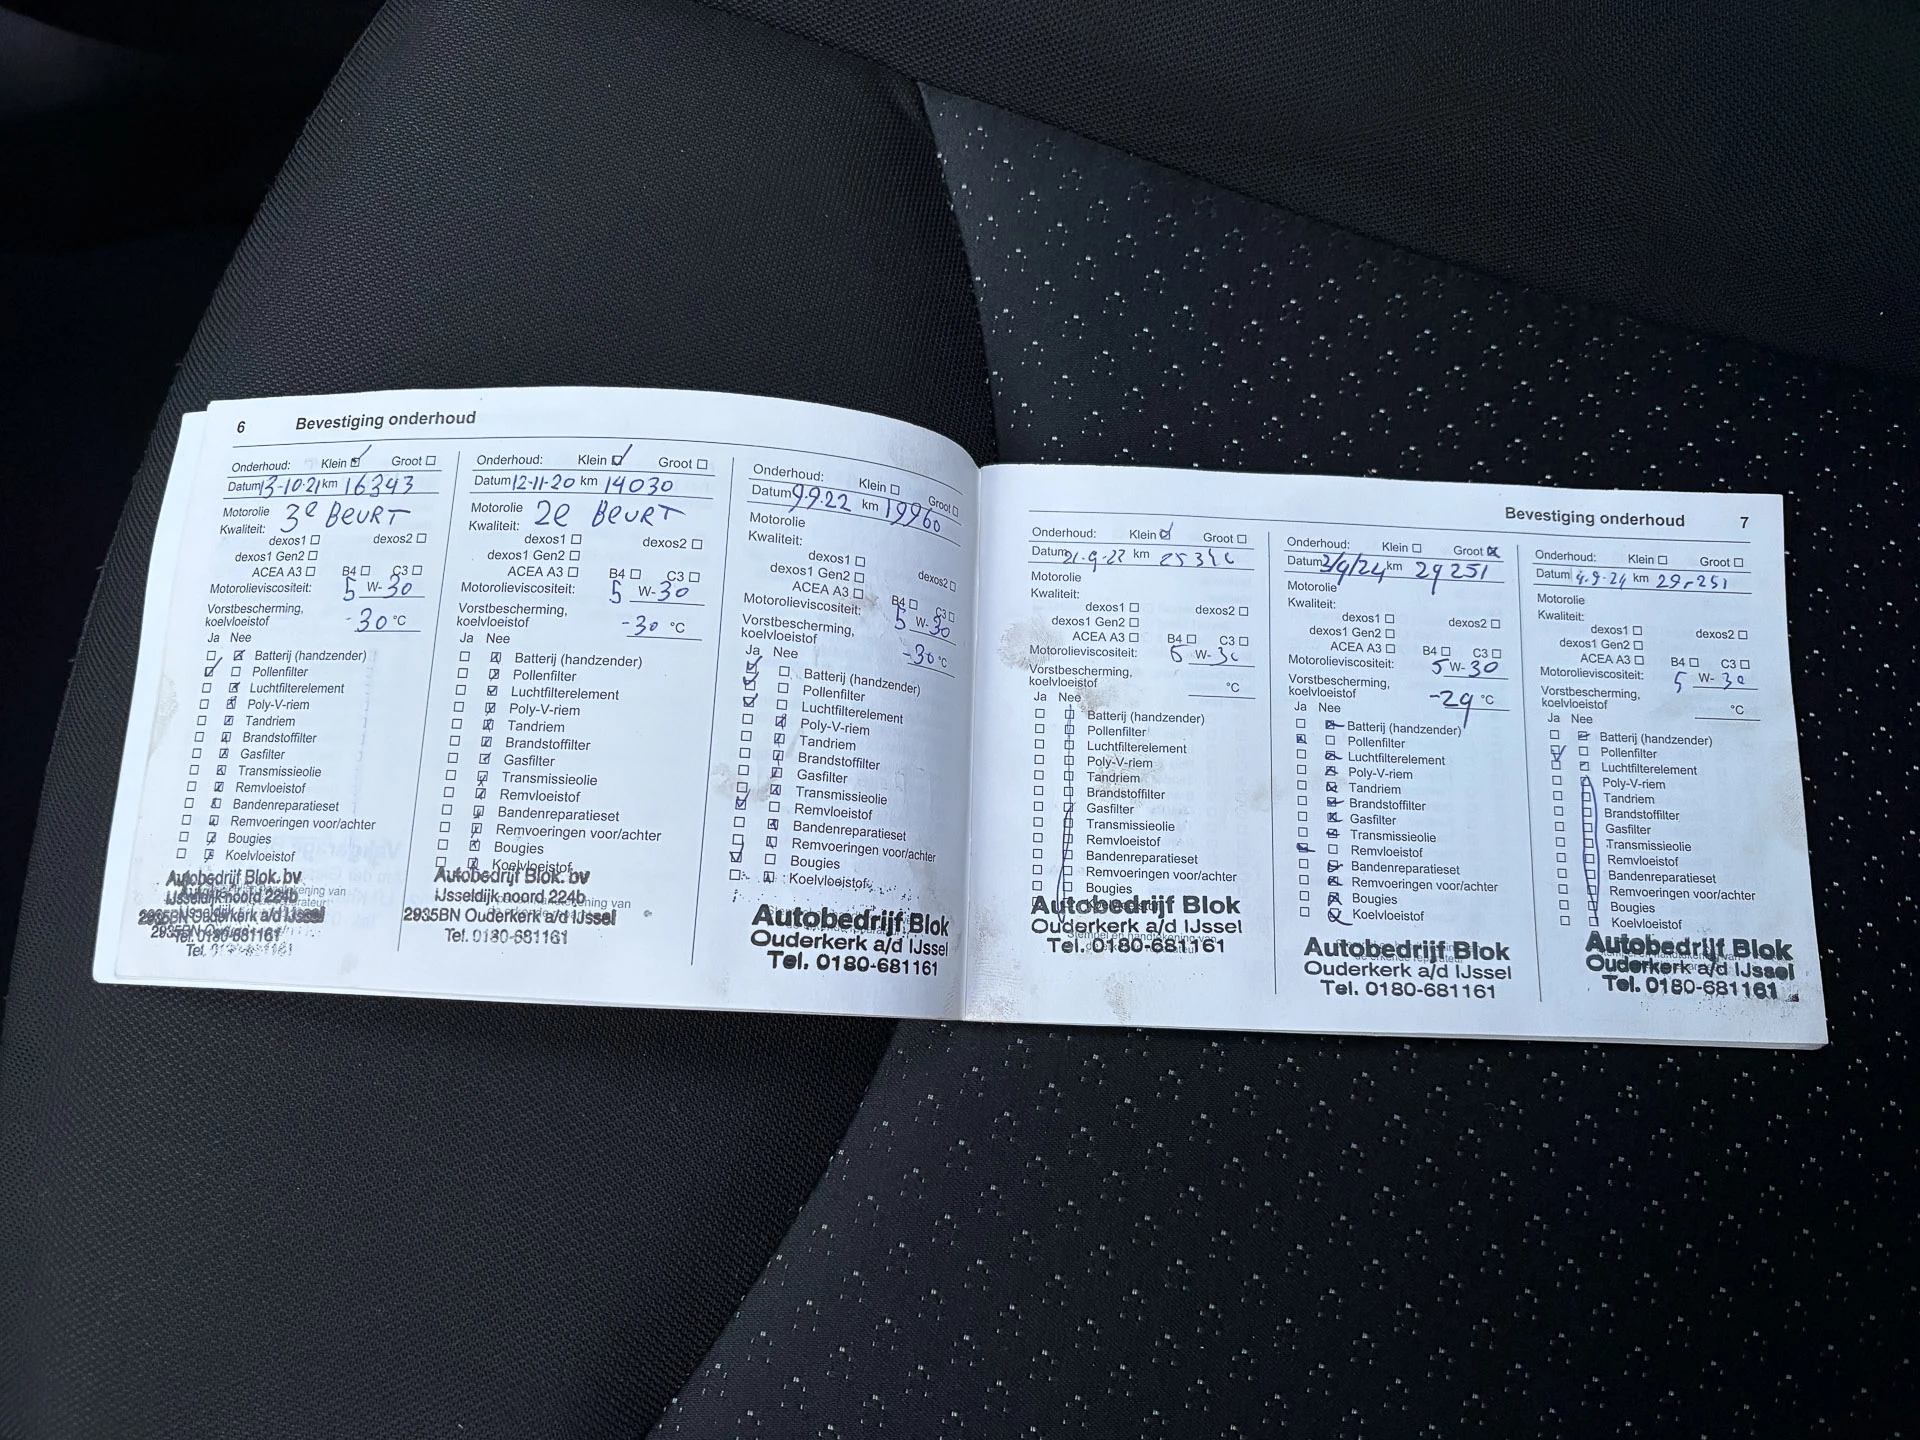 6 Bevestiging onderhoud
Onderhoud: Klein Groot
Datum 13-10-21 km 16343
Motorolie
Kwaliteit: 3e BEURT
dexos1 dexos2
dexos1 Gen2
ACEA A3 B4 C3
Motorolieviscositeit: 5 W-30
Vorstbescherming,
koelvloeistof -30 °C
Ja Nee
Batterij (handzender)
Pollenfilter
Luchtfilterelement
Poly-V-riem
Tandriem
Brandstoffilter
Gasfilter
Transmissieolie
Remvloeistof
Bandenreparatieset
Remvoeringen voor/achter
Bougies
Koelvloeistof
Autobedrijf Blok.bv
IJsseldijk noord 224b
2935BN Ouderkerk a/d IJssel
Tel. 0180-681161
Onderhoud: Klein Groot
Datum 12-11-20 km 14030
Motorolie
Kwaliteit: 2e BEURT
dexos1 dexos2
dexos1 Gen2
ACEA A3 B4 C3
Motorolieviscositeit: 5 W-30
Vorstbescherming,
koelvloeistof -30 °C
Ja Nee
Batterij (handzender)
Pollenfilter
Luchtfilterelement
Poly-V-riem
Tandriem
Brandstoffilter
Gasfilter
Transmissieolie
Remvloeistof
Bandenreparatieset
Remvoeringen voor/achter
Bougies
Koelvloeistof
Autobedrijf Blok.bv
IJsseldijk noord 224b
2935BN Ouderkerk a/d IJssel
Tel. 0180-681161
Onderhoud: Klein Groot
Datum 9.9.22 km 19960
Motorolie
Kwaliteit:
dexos1 dexos2
dexos1 Gen2
ACEA A3 B4 C3
Motorolieviscositeit: 5 W-30
Vorstbescherming,
koelvloeistof -30 °C
Ja Nee
Batterij (handzender)
Pollenfilter
Luchtfilterelement
Poly-V-riem
Tandriem
Brandstoffilter
Gasfilter
Transmissieolie
Remvloeistof
Bandenreparatieset
Remvoeringen voor/achter
Bougies
Koelvloeistof
Autobedrijf Blok
Ouderkerk a/d IJssel
Tel. 0180-681161
Bevestiging onderhoud 7
Onderhoud: Klein Groot
Datum km
Motorolie
Kwaliteit:
dexos1 dexos2
dexos1 Gen2
ACEA A3 B4 C3
Motorolieviscositeit: 5 W-30
Vorstbescherming,
koelvloeistof °C
Ja Nee
Batterij (handzender)
Pollenfilter
Luchtfilterelement
Poly-V-riem
Tandriem
Brandstoffilter
Gasfilter
Transmissieolie
Remvloeistof
Bandenreparatieset
Remvoeringen voor/achter
Bougies
Autobedrijf Blok
Ouderkerk a/d IJssel
Tel. 0180-681161
Onderhoud: Klein Groot
Datum km 29251
Motorolie
Kwaliteit:
dexos1 dexos2
dexos1 Gen2
ACEA A3 B4 C3
Motorolieviscositeit: 5 W-30
Vorstbescherming,
koelvloeistof -29 °C
Ja Nee
Batterij (handzender)
Pollenfilter
Luchtfilterelement
Poly-V-riem
Tandriem
Brandstoffilter
Gasfilter
Transmissieolie
Remvloeistof
Bandenreparatieset
Remvoeringen voor/achter
Bougies
Koelvloeistof
Autobedrijf Blok
Ouderkerk a/d IJssel
Tel. 0180-681161
Onderhoud: Klein Groot
Datum 4.9-24 km 29.251
Motorolie
Kwaliteit:
dexos1 dexos2
dexos1 Gen2
ACEA A3 B4 C3
Motorolieviscositeit: 5 W-30
Vorstbescherming,
koelvloeistof °C
Ja Nee
Batterij (handzender)
Pollenfilter
Luchtfilterelement
Poly-V-riem
Tandriem
Brandstoffilter
Gasfilter
Transmissieolie
Remvloeistof
Bandenreparatieset
Remvoeringen voor/achter
Bougies
Koelvloeistof
Autobedrijf Blok
Ouderkerk a/d IJssel
Tel. 0180-681161